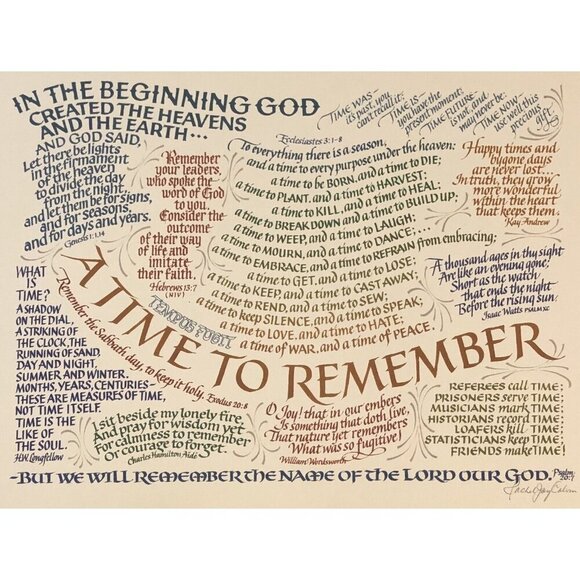 IN THE BEGINNING GOD
CREATED THE HEAVENS
AND THE EARTH...
AND GOD SAID,
Let there be lights
in the firmament
of the heaven
to divide the day
from the night,
and let them be for signs,
and for seasons,
and for days and years.
Genesis 1:1,14
TIME WAS—
is past, you
can't recall it;
TIME IS—
you have the
present moment;
TIME FUTURE—
is not, and
may never be.
TIME NOW,
use well this
precious
gift.
Remember
your leaders,
who spoke the
word of God
to you.
Consider the
outcome
of their way
of life and
imitate
their faith.
Hebrews 13:7
(NIV)
Ecclesiastes 3:1-8
To everything there is a season,
and a time to every purpose under the heaven:
a time to be BORN, and a time to DIE;
a time to PLANT, and a time to HARVEST;
a time to KILL, and a time to HEAL;
a time to BREAK DOWN and a time to BUILD UP;
a time to WEEP, and a time to LAUGH;
a time to MOURN, and a time to DANCE;...
a time to EMBRACE, and a time to REFRAIN from embracing;
a time to GET, and a time to LOSE;
a time to KEEP, and a time to CAST AWAY;
a time to REND, and a time to SEW;
a time to keep SILENCE, and a time to SPEAK;
a time to LOVE, and a time to HATE;
a time of WAR, and a time of PEACE.
Happy times and
bygone days
are never lost...
In truth, they grow
more wonderful
within the heart
that keeps them.
Kay Andrew
A thousand ages in thy sight
Are like an evening gone;
Short as the watch
that ends the night
Before the rising sun.
Isaac Watts PSALM XC
WHAT
IS
TIME?
A SHADOW
ON THE DIAL,
A STRIKING OF
THE CLOCK, THE
RUNNING OF SAND,
DAY AND NIGHT,
SUMMER AND WINTER,
MONTHS, YEARS, CENTURIES—
THESE ARE MEASURES OF TIME,
NOT TIME ITSELF.
TIME IS THE
LIKE OF
THE SOUL.
H.W. Longfellow
TEMPUS FUGIT
A TIME TO REMEMBER
Remember the Sabbath day, to keep it holy. Exodus 20:8
I sit beside my lonely fire
And pray for wisdom yet
For calmness to remember
Or courage to forget.
Charles Hamilton Aïdé
O Joy! that in our embers
Is something that doth live,
That nature yet remembers
What was so fugitive!
William Wordsworth
REFEREES call TIME;
PRISONERS serve TIME;
MUSICIANS mark TIME;
HISTORIANS record TIME;
LOAFERS kill TIME;
STATISTICIANS keep TIME;
FRIENDS make TIME!
-BUT WE WILL REMEMBER THE NAME OF THE LORD OUR GOD. Psalm 20:7